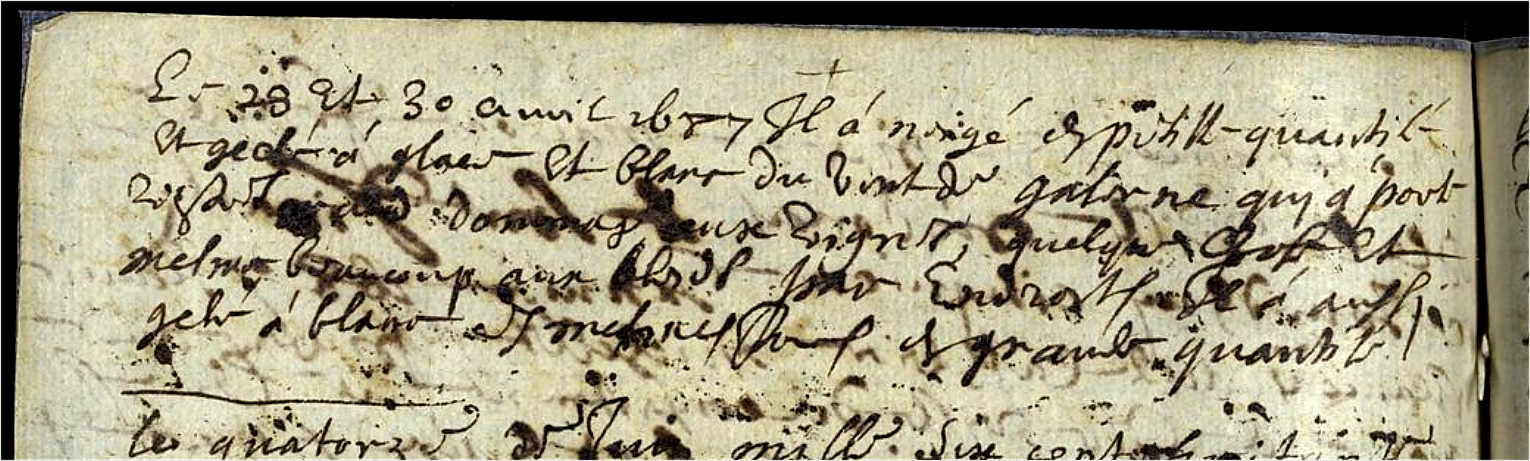 Le 28 et 30 avril 1677 Il á neigé en petitte quantité
Et gelé á glace Et blanc du vent de galerne quy á porté
grand dommage aux vignes, quelque chose Et
mesme beaucoup aux bleds par endroits Il á aussy
gelé á blanc en mesmes jours en grande quantité
le quatorze de Juin mille six cents